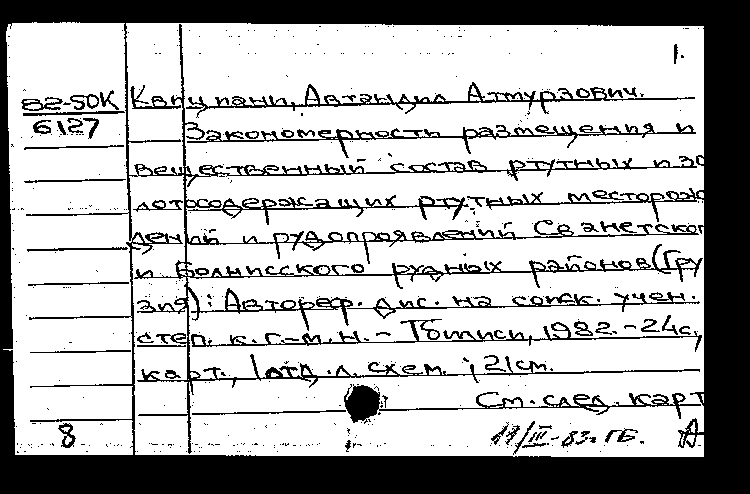 1.
82-50К Капцпани, Автандил Атурзович.
6127 Закономерность размещения и
вещественный состав ртутных и зо
лотосодержащих ртутных месторож
дений и рудопроявлений Сванетског
и Болнисского рудных районов (Гру
зия): Автореф. дис. на соиск. учен.
степ. к. г.-м. н. - Тбилиси, 1982. - 24с,
карт., 1 отд. л. схем. ; 21см.
См. след. карт
8 11/III-83г ГБ. А